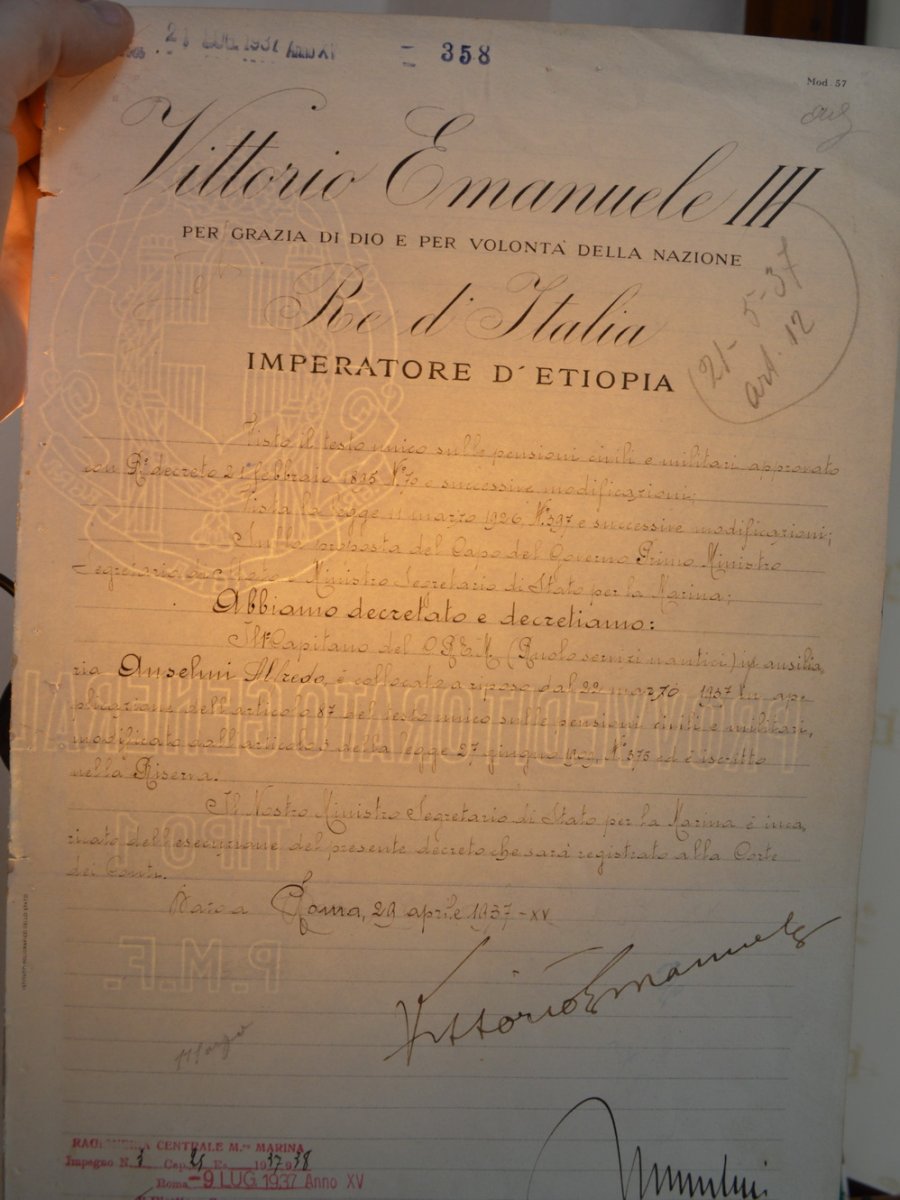 21 LUG. 1937 Anno XV
358
Mod. 57
Vittorio Emanuele III
PER GRAZIA DI DIO E PER VOLONTA' DELLA NAZIONE
Re d'Italia
IMPERATORE D'ETIOPIA
(21-5-37
art. 12
Visto il testo unico sulle pensioni civili e militari approvato
con R° decreto 21 febbraio 1895 N° 70 e successive modificazioni;
Vista la legge 11 marzo 1926 N° 397 e successive modificazioni;
Sulla proposta del Capo del Governo Primo Ministro
Segretario di Stato e Ministro Segretario di Stato per la Marina;
Abbiamo decretato e decretiamo:
Il 1° Capitano del C.R.E.M. (Ruolo servizi nautici) in ausilia,
ria Anselmi Alfredo, è collocato a riposo dal 22 marzo 1937 in ap=
plicazione dell'articolo 87 del testo unico sulle pensioni civili e militari,
modificato dall'articolo 3 della legge 27 giugno 1909, N° 375 ed è iscritto
nella Riserva.
Il Nostro Ministro Segretario di Stato per la Marina è inca,
ricato dell'esecuzione del presente decreto che sarà registrato alla Corte
dei Conti.
Dato a Roma, 29 aprile 1937-XV
TIPO 1
P.M.F.
Vittorio Emanuele
RAGIONERIA CENTRALE M.RO MARINA
Impegno N. 3 Cap. 21 Es. 1937 938
Roma -9 LUG 1937 Anno XV
Mussolini